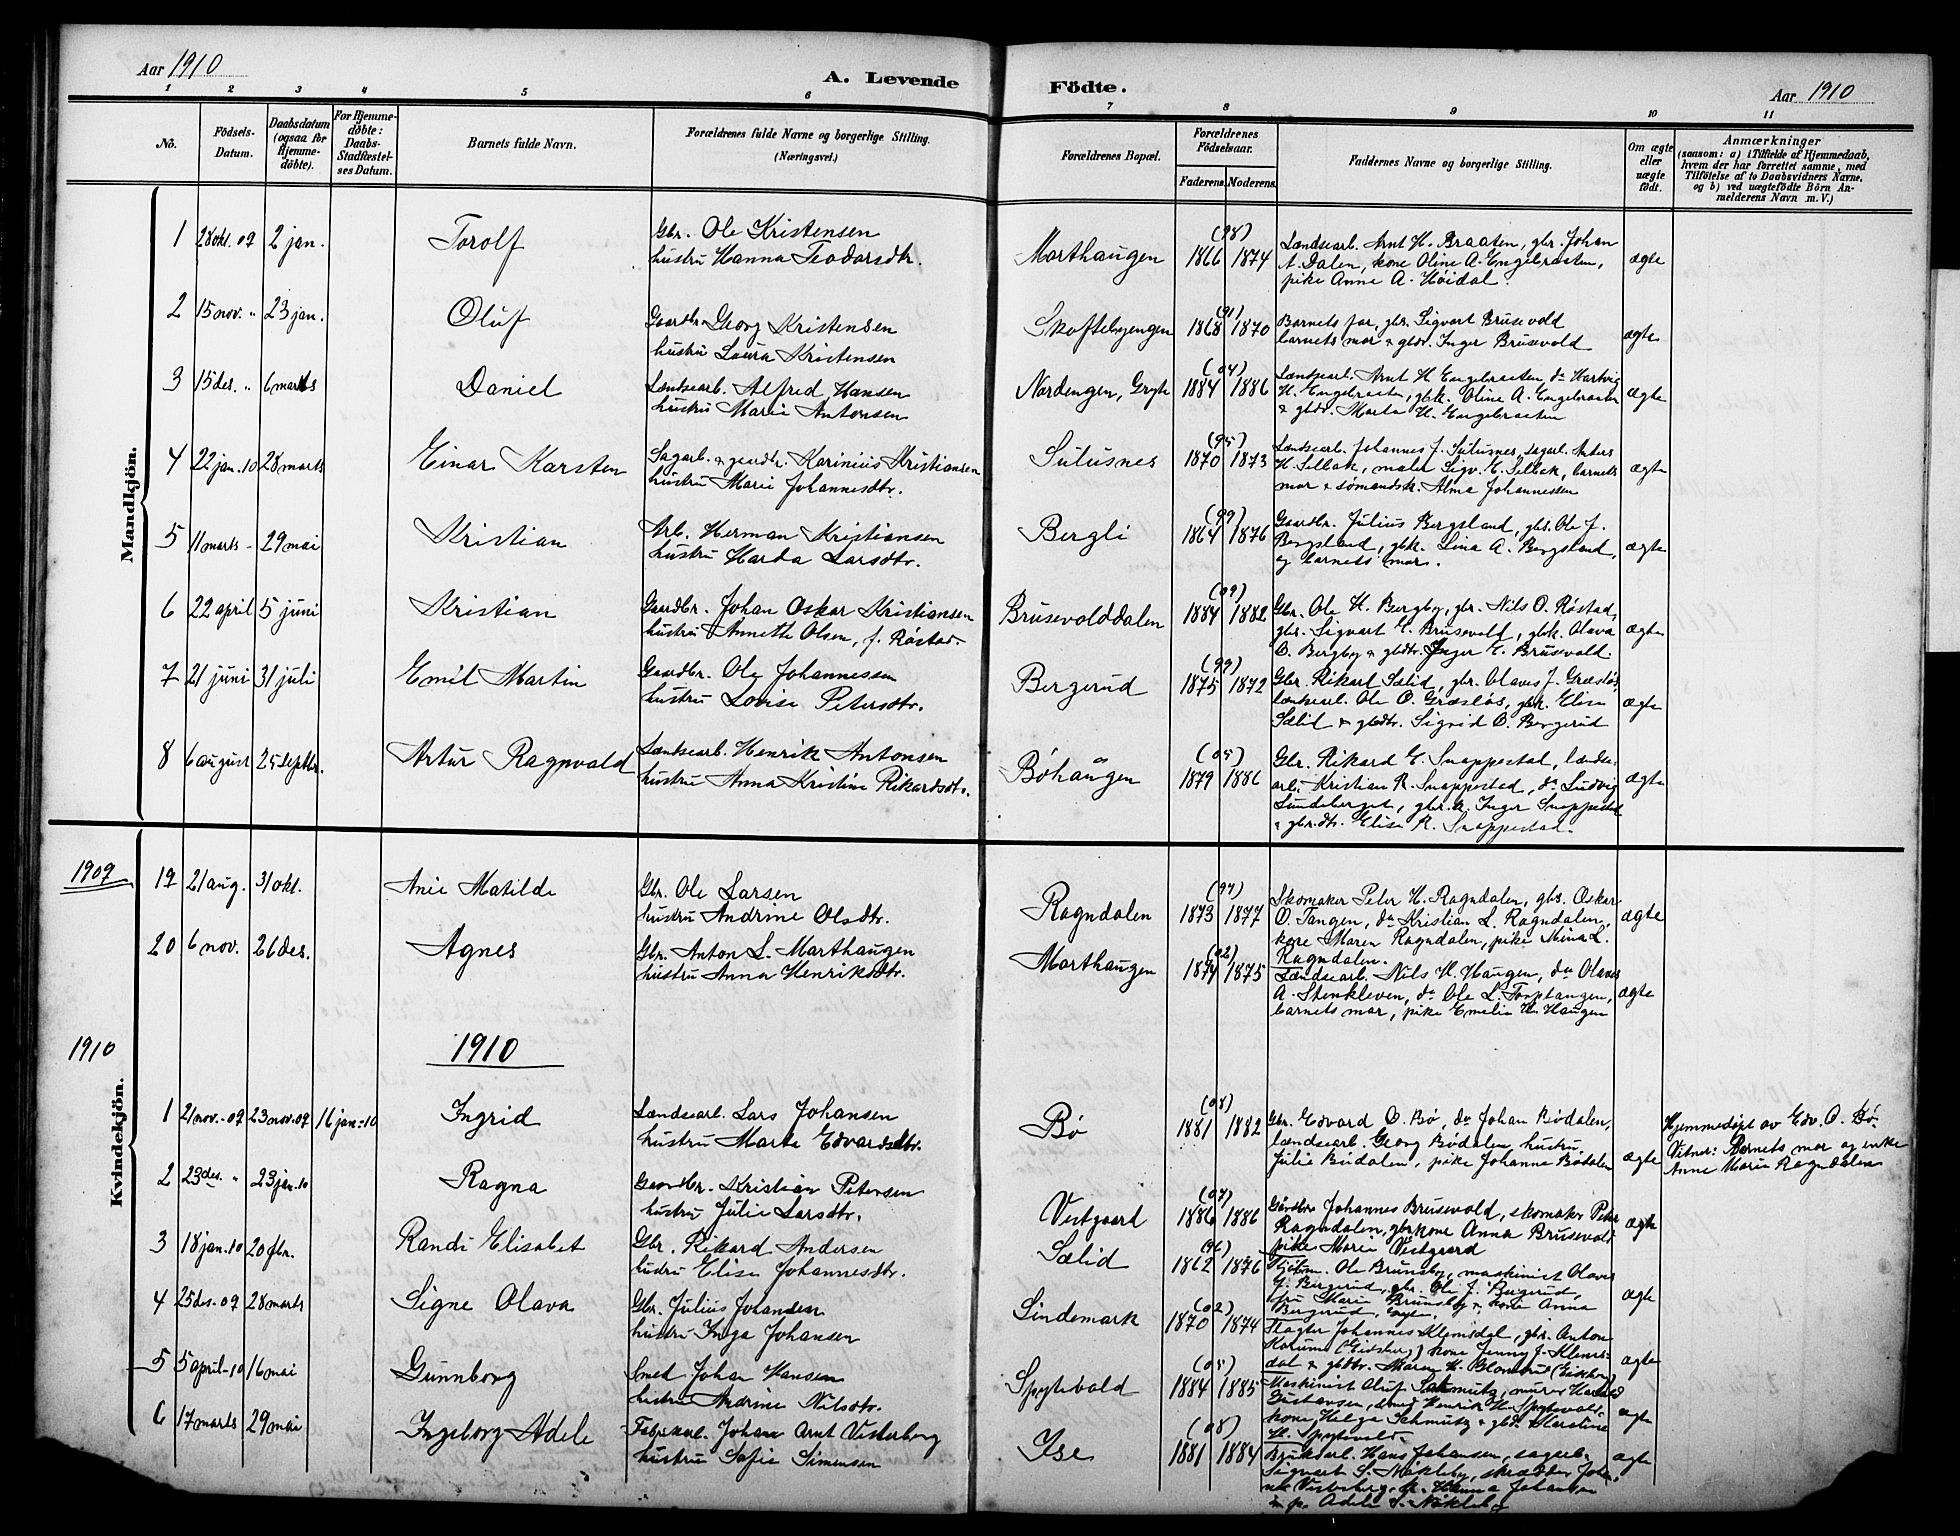 Aar 1910
A. Levende
Födte.
Aar 1910
1 2 3 4 5 6 7 8 9 10 11
No.
Födsels-
Datum.
Daabsdatum
(ogsaa for
Hjemme-
døbte).
For Hjemme-
døbte:
Daabs-
Stadfæstel-
ses Datum.
Barnets fulde Navn.
Forældrenes fulde Navne og borgerlige Stilling.
(Næringsvei.)
Forældrenes Bopæl.
Forældrenes
Födselsaar.
Faderens. Moderens.
Faddernes Navne og borgerlige Stilling.
Om ægte
eller
uægte
födt.
Anmærkninger
(saasom: a) i Tilfælde af Hjemmedaab,
hvem der har forrettet samme, med
Tilföielse af to Daabsvidners Navne,
og b) ved uægtefödte Börn An-
melderens Navn m. V.)
Mandkjön.
1 28 okt. 09 2 jan. Torolf
Gbr. Ole Kristensen
hustru Hanna Teodorsdtr.
Marthaugen (98) 1866 1874
Lændsearb. Arnt H. Braaten, gbr. Johan
A. Dalen, kone Oline A. Engebraaten,
pike Anne A. Høidal.
ægte
2 15 nov. " 23 jan. Oluf
Gaardbr. Georg Kristensen
hustru Laura Kristensen
Skoftebyengen (91) 1868 1870
Barnets far, gbr. Sigvart Brusevold
barnets mor & gbdr. Inger Brusevold
ægte
3 15 des. " 6 marts Daniel
Lændsearb. Alfred Hansen
hustru Marie Antonsen
Nordengen, Gryte (04) 1884 1886
Lændsearb. Arnt H. Engebraaten, do Hartvig
H. Engebraaten, gbk. Oline A. Engebraaten
& gbdr. Marta H. Engebraaten
ægte
4 22 jan. 10 28 marts Einar Karsten
Sagarb. & gaardbr. Karinius Kristiansen
hustru Marie Johannesdtr.
Sulusnes (95) 1870 1873
Lændsearb. Johannes J. Sulusnes, sagarb. Anders
H. Sellak, maler Sigv. E. Sellak, barnets
mor & sømandsk. Alma Johannessen
ægte
5 11 marts - 29 mai Kristian
Arb. Herman Kristiansen
hustru Harda Larsdtr.
Bergli (99) 1864 1876
Gaardbr. Julius Bergsland, gbs. Ole J.
Bergsland, gbk. Lina A. Bergsland,
og barnets mor.
ægte
6 22 april 5 juni Kristian
Gaardbr. Johan Oskar Kristiansen
hustru Annette Olsen, f. Røstad.
Brusevolddalen (09) 1884 1882
Gbr. Ole H. Bergby, gbr. Nils O. Røstad,
gbs. Sigvart E. Brusevold, gbk. Olava
O. Bergby & gbdtr. Inger E. Brusevold.
ægte
7 21 juni 31 juli Emil Martin
Gaardbr. Ole Johannessen
hustru Lovise Petersdtr.
Bergerud (99) 1875 1872
Gbr. Rikart Sælid, gbr. Olaves J. Græsløs,
lændsearb. Ole O. Græsløs, gbk. Elise
Sælid & gbdtr. Sigrid O. Bergerud
ægte
8 6 august 25 septbr. Artur Ragnvald
Lændsearb. Henrik Antonsen
hustru Anna Kristine Rikardsdtr.
Bøhaugen (05) 1879 1886
Gbr. Rikard E. Snappestad, lændse-
arb. Kristian R. Snappestad, do Ludvig
Lundeberget, gbr.k. Inger Snappestad
& gbr.dtr. Elise R. Snappestad.
ægte
1909
19 21 aug. 31 okt. Anie Matilde
Gbr. Ole Larsen
hustru Andrine Olsdtr.
Ragndalen (97) 1873 1877
Skomaker Peter H. Ragndalen, gbs. Oskar
O. Tangen, do Kristian L. Ragndalen,
kone Maren Ragndalen, pike Mina L.
Ragndalen.
ægte
20 6 nov. 26 des. Agnes
Gbr. Anton L. Marthaugen
hustru Anna Henriksdtr.
Marthaugen (02) 1874 1875
Lændsearb. Nils H. Haugen, do Olaves
A. Stenkleven, do Ole L. Torptangen,
barnets mor, pike Emelie H. Haugen
ægte
1910
1910
Kvindekjön.
1 21 nov. - 09 23 nov. 09 16 jan. - 10 Ingrid
Lændsearb. Lars Johansen
hustru Marte Edvardsdtr.
Bø (08) 1881 1882
Gbr. Edvard O. Bø, do Johan Bødalen,
lændsearb. Georg Bødalen, hustru
Julie Bødalen, pike Johanne Bødalen
ægte
Hjemmedøpt av Edv. O. Bø.
Vitner: Barnets mor og enke
Anne Marie Ragndalen
2 23 des. " 23 jan. 10 Ragna
Gaardbr. Kristian Petersen
hustru Julie Larsdtr.
Vestgaard (07) 1886 1886
Gårdbr. Johannes Brusevold, skomaker Peter
Ragndalen, gbr.kone Anna Brusevold
pike Marie Vestgaard
ægte
3 18 jan. 10 20 fbr. Randi Elisabet
Gbr. Rikard Andersen
hustru Elise Johannesdtr.
Sælid (96) 1862 1876
Ole Brunsby, maskinist Olaves
J. Bergerud, gbr. Ole J. Bergerud,
fru Marie Brunsby & kone Anna
Bergerud,
ægte
4 25 des. 09 28 marts Signe Olava
Gbr. Julius Johansen
hustru Inga Johansen
Lindemark (02) 1870 1874
Slagter Johannes Klemsdal, gbr. Anton
Korum (Eidsberg) kone Jenny J. Klems-
dal & gbdtr. Maren H.
ægte
5 5 april - 10 16 mai Gunnborg
Smed Johan Hansen
hustru Andrine Nilsdtr.
Spytevold (05) 1884 1885
Maskinist Oluf Schmutz, murer Harald
Gustavsen, smed Henrik H. Spytevold,
kone Helga Schmutz & gbdr. Karoline
H. Spytevold.
ægte
6 17 marts 29 mai Ingeborg Adele
Fabrikarb. Johan Arnt Vesterborg
hustru Sofie Simensen
Ise (08) 1881 1884
Brukarb. Hans Johansen, sagarb.
Sigvart S. Nøkleby, skrædder Johan-
Hanna Johansen
& p. Adele S. Nøkleby
ægte